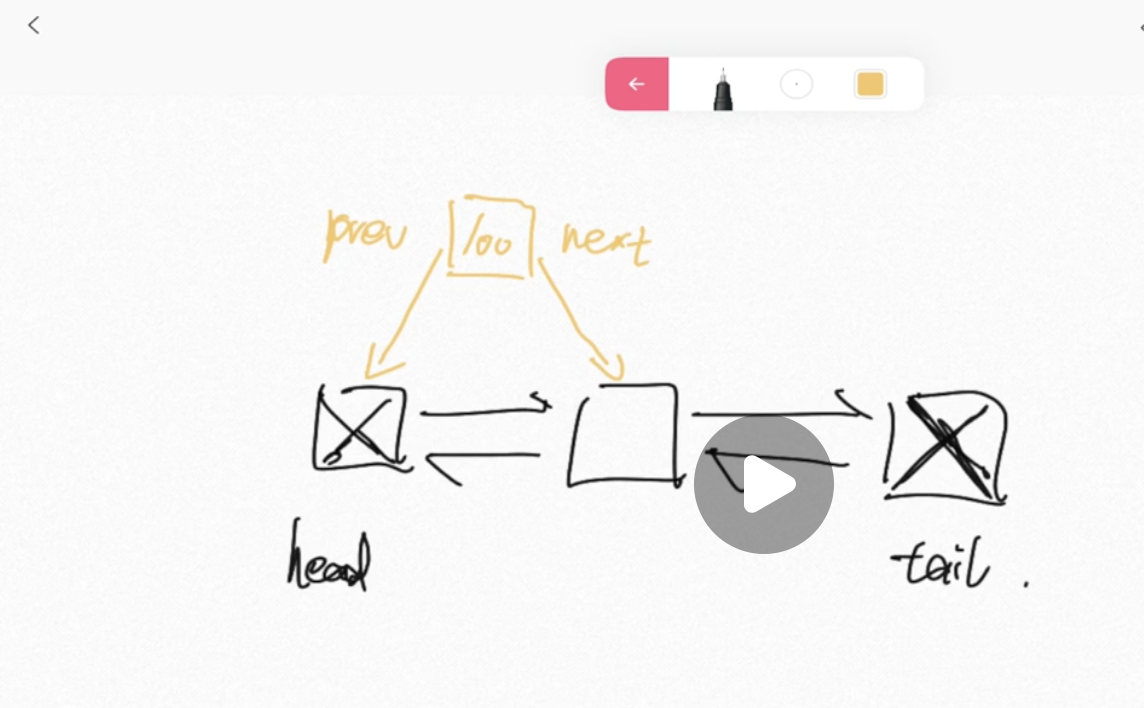 prev 100 next
head
tail.